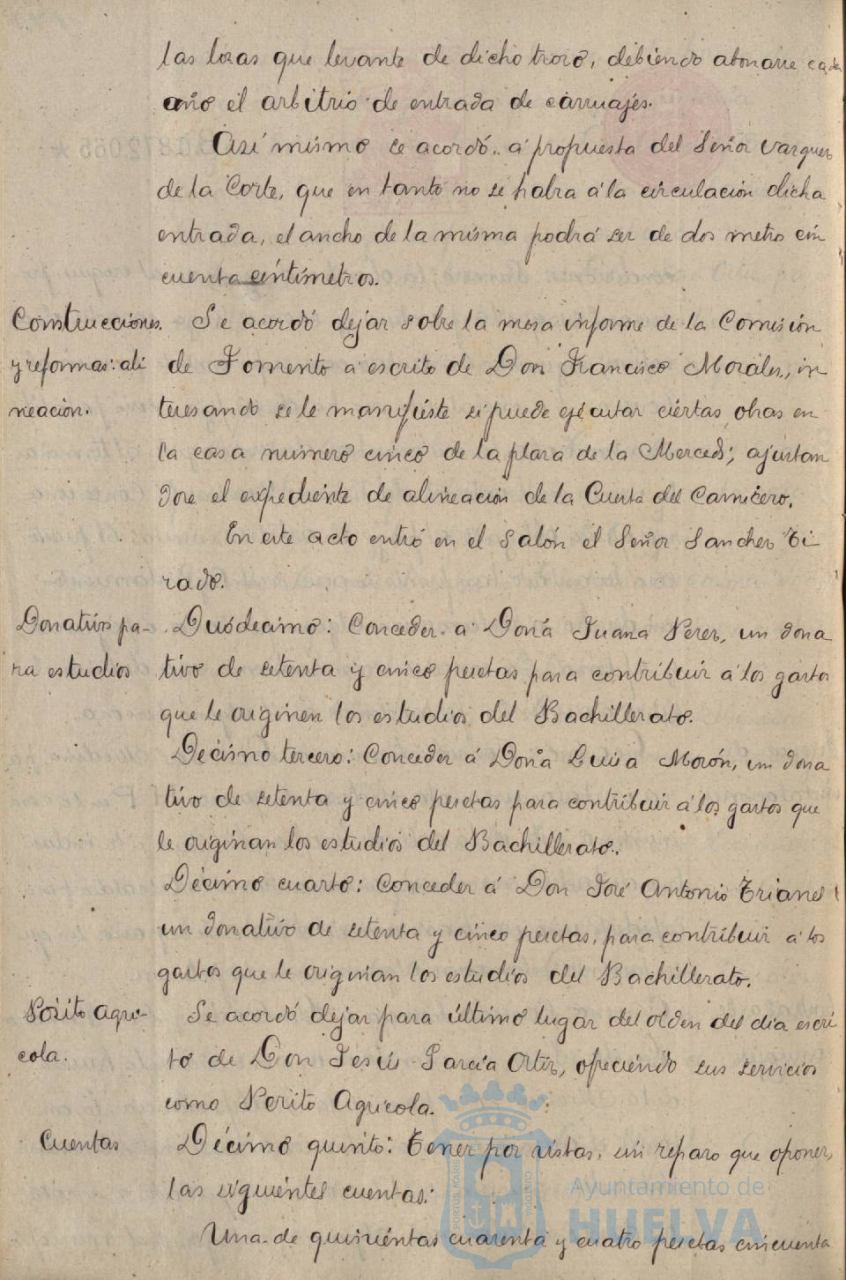 las losas que levante de dicho trozo, debiendo abonarse cada
año el arbitrio de entrada de carruajes.
Así mismo se acordó a propuesta del Señor Varques
de la Corte, que en tanto no se habra á la circulación dicha
entrada, el ancho de la misma podrá ser de dos metro cin
cuenta centímetros.
Construcciones. Se acordó dejar sobre la mesa informe de la Comisión
y reformas: ali de Fomento a escrito de Don Francisco Morales, in
neación. teresando se le manifieste si puede ejecutar ciertas obras en
la casa numero cinco de la plaza de la Merced; ajustan
dose el expediente de alineación de la Cuesta del Carnicero.
En este acto entró en el Salón el Señor Sanches Ti
rado.
Donativos pa- Duódecimo: Conceder a Doña Juana Peres, un dona
ra estudios tivo de setenta y cinco pesetas para contribuir á los gastos
que le originen los estudios del Bachillerato.
Décimo tercero: Conceder á Doña Luisa Morón, un dona
tivo de setenta y cinco pesetas para contribuir á los gastos que
le originan los estudios del Bachillerato.
Décimo cuarto: Conceder á Don José Antonio Trianes
un donativo de setenta y cinco pesetas, para contribuir á los
gastos que le originan los estudios del Bachillerato.
Pósito Agri- Se acordó dejar para último lugar del orden del dia escri
cola. to de Don Jesús García Ortiz, ofreciendo sus servicios
como Perito Agricola.
Cuentas Décimo quinto: Tener por vistas, sin reparo que oponer,
las siguientes cuentas:
Una de quinientas cuarenta y cuatro pesetas cincuenta
Ayuntamiento de
HUELVA